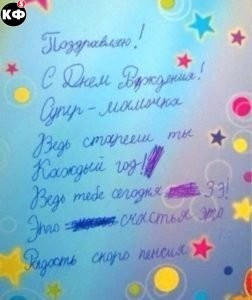 КФ
Поздравляю!
С Днем Рождения!
Супер-мамочка
Ведь стареешь ты
Каждый год!
Ведь тебе сегодня 33!
Это счастья это
Радость скоро пенсия